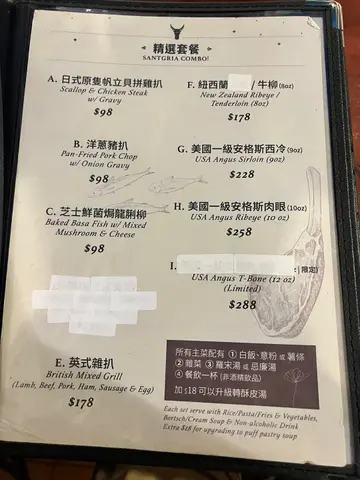 精選套餐
SANTGRIA COMBO!
A. 日式原隻帆立貝拼雞扒
Scallop & Chicken Steak
w/ Gravy
$98
B. 洋蔥豬扒
Pan-Fried Pork Chop
w/ Onion Gravy
$98
C. 芝士鮮菌焗龍脷柳
Baked Basa Fish w/ Mixed
Mushroom & Cheese
$98
E. 英式雜扒
British Mixed Grill
(Lamb, Beef, Pork, Ham, Sausage & Egg)
$178
F. 紐西蘭 / 牛柳 (8oz)
New Zealand Ribeye /
Tenderloin (8oz)
$178
G. 美國一級安格斯西冷 (9oz)
USA Angus Sirloin (9oz)
$228
H. 美國一級安格斯肉眼 (10oz)
USA Angus Ribeye (10 oz)
$258
I. 限定)
USA Angus T-Bone (12 oz)
(Limited)
$288
所有主菜配有 ① 白飯、意粉 或 薯條
② 雜菜 ③ 羅宋湯 或 忌廉湯
④ 餐飲一杯 (非酒精飲品)
加 $18 可以升級轉酥皮湯
Each set serve with Rice/Pasta/Fries & Vegetables,
Bortsch/Cream Soup & Non-alcoholic Drink
Extra $18 for upgrading to puff pastry soup